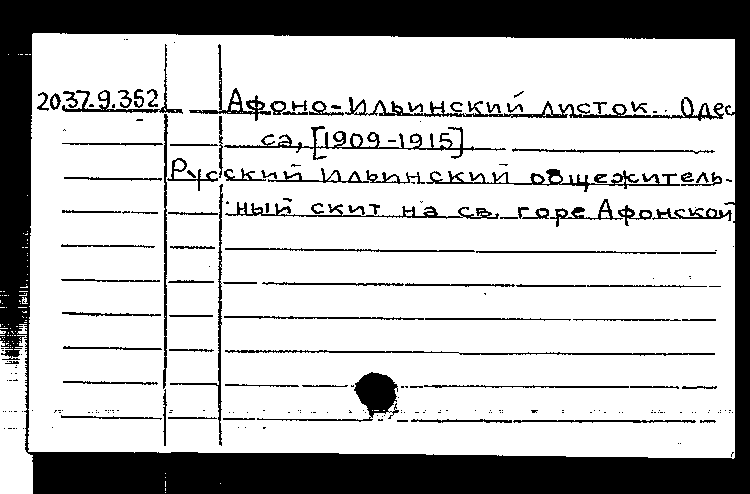 2037.9.352 Афоно-Ильинский листок. Одес
са, [1909-1915].
Русский Ильинский общежитель-
ный скит на св. горе Афонской